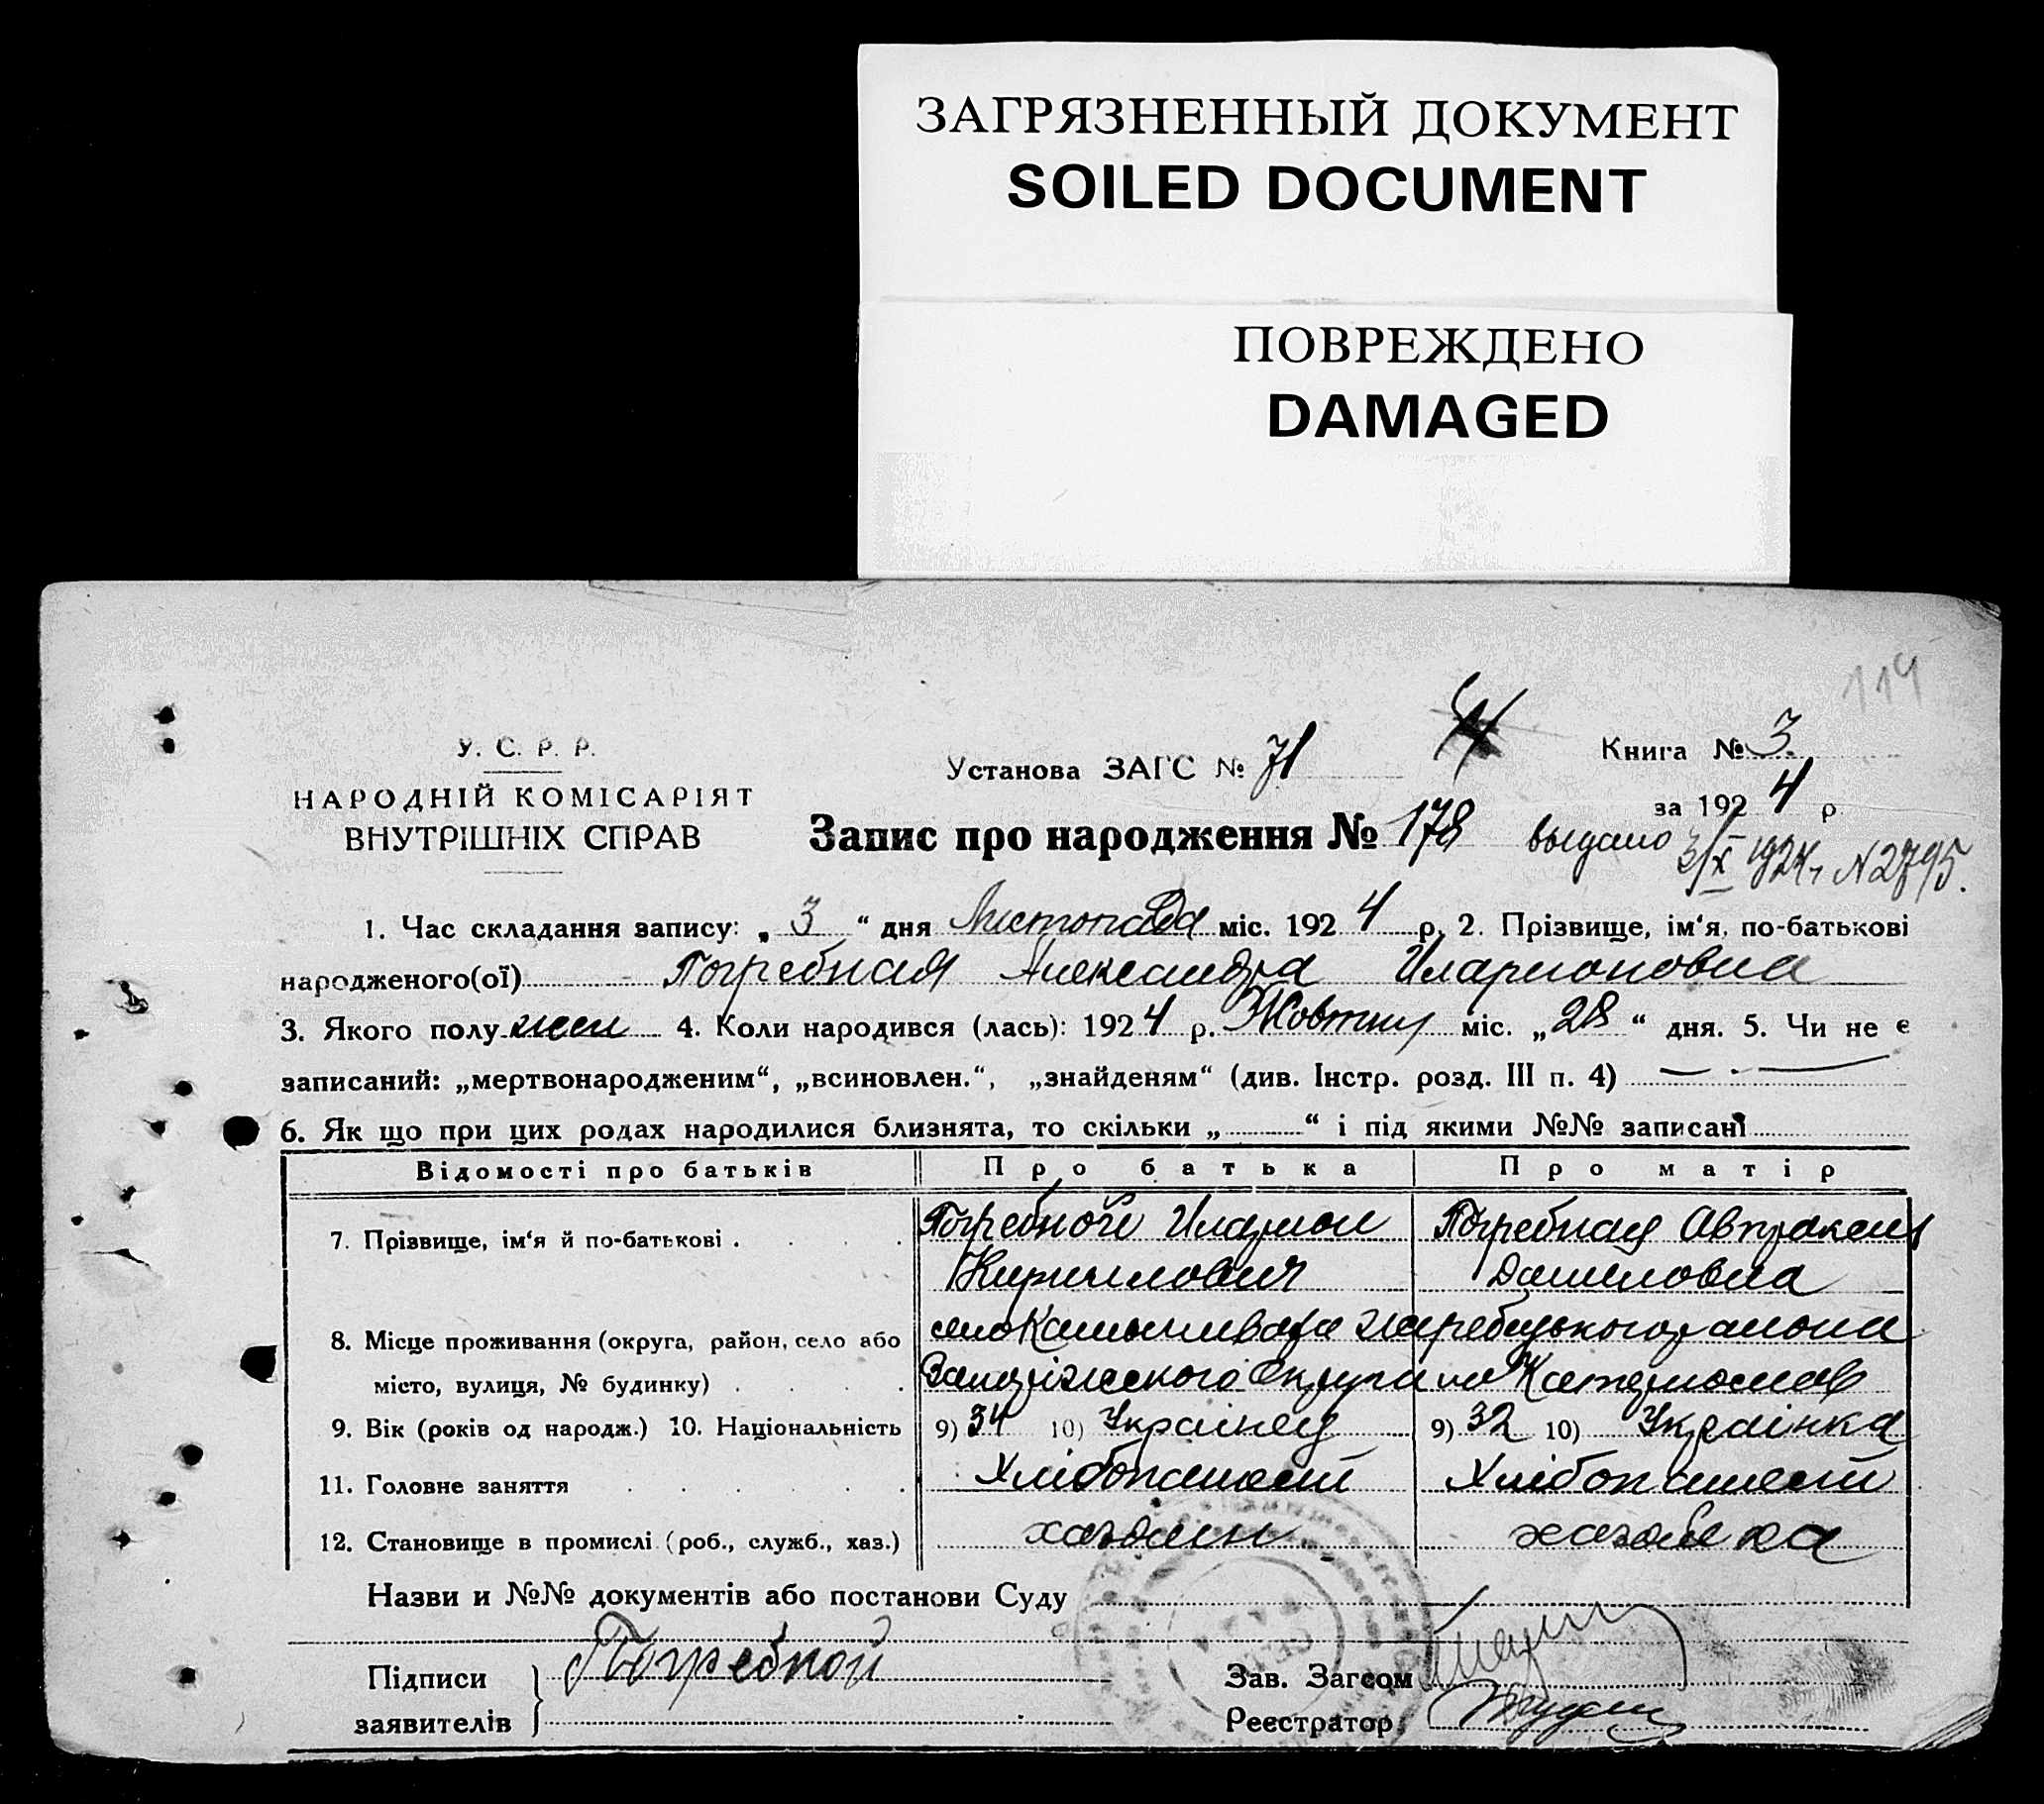 ЗАГРЯЗНЕННЫЙ ДОКУМЕНТ
SOILED DOCUMENT
ПОВРЕЖДЕНО
DAMAGED
114
У. С. Р. Р.
НАРОДНІЙ КОМІСАРІЯТ
ВНУТРІШНІХ СПРАВ
Установа ЗАГС № 71
Книга № 3.
за 1924 р
Запис про народження № 178 выдано 3/X 1924г N 2795.
1. Час складання запису: „ 3 “ дня Листопада міс. 1924 р. 2. Прізвище, ім‘я, по-батькові
народженого(ої) Погребная Александра Иларионовна
3. Якого полу жен 4. Коли народився (лась): 1924 р. Жовтню міс. „28“ дня. 5. Чи не є
записаний: „мертвонародженим“, „всиновлен.“, „знайденям“ (див. Інстр. розд. III п. 4) —
6. Як що при цих родах народилися близнята, то скільки „ “ і під якими №№ записані
Відомості про батьків Про батька Про матір
7. Прізвище, ім‘я й по-батькові Погребной Иларион Погребная
Кириллович Даниловна
8. Місце проживання (округа, район, село або село Жеребецького района
місто, вулиця, № будинку) Запоріжского Округа на
9. Вік (років од народж.) 10. Національність 9) 34 10) Українец 9) 32 10) Українка
11. Головне заняття Хлібопашест Хлібопашест
12. Становище в промислі (роб., служб., хаз.) хазаин хазайка
Назви и №№ документів або постанови Суду
Підписи Погребной Зав. Загсом
заявителів Реєстратор